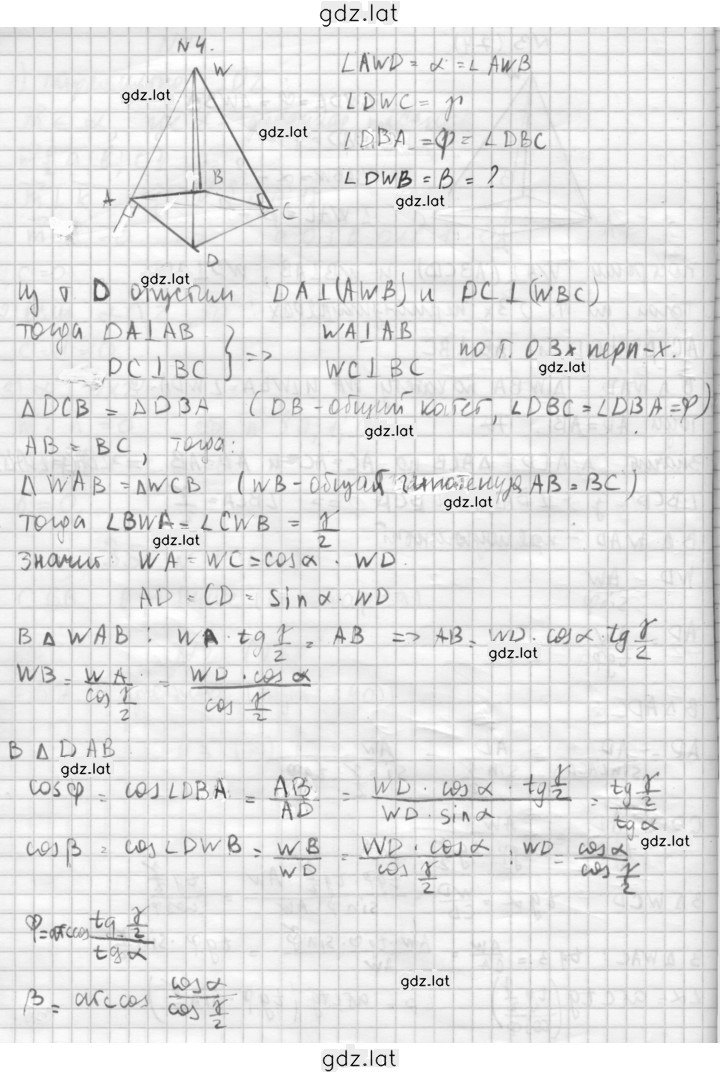 gdz.lat
№4.
W
gdz.lat
gdz.lat
A
B
C
D
∠AWD = α = ∠AWB
∠DWC = γ
∠DBA = φ = ∠DBC
∠DWB = β = ?
gdz.lat
gdz.lat
Из т D опустим DA⊥(AWB) и DC⊥(WBC)
тогда DA⊥AB
DC⊥BC } =>
WA⊥AB
WC⊥BC по т. о 3х перп-х.
gdz.lat
△DCB = △DBA (DB - общий катет, ∠DBC = ∠DBA = φ)
gdz.lat
AB = BC, тогда:
△WAB = △WCB (WB - общая гипотенуза AB = BC)
gdz.lat
тогда ∠BWA = ∠CWB = γ/2
gdz.lat
Значит: WA = WC = cosα · WD
AD = CD = sinα · WD
В △ WAB: WA · tg γ/2 = AB => AB = WD · cosα · tg γ/2
gdz.lat
WB = WA / cos γ/2 = WD · cosα / cos γ/2
В △ DAB
gdz.lat
cosφ = cos∠DBA = AB/AD = WD · cosα · tg γ/2 / WD · sinα = tg γ/2 / tgα
gdz.lat
cosβ = cos∠DWB = WB/WD = WD · cosα / cos γ/2 : WD = cosα / cos γ/2
φ = arccos tg γ/2 / tgα
gdz.lat
β = arccos cosα / cos γ/2
gdz.lat